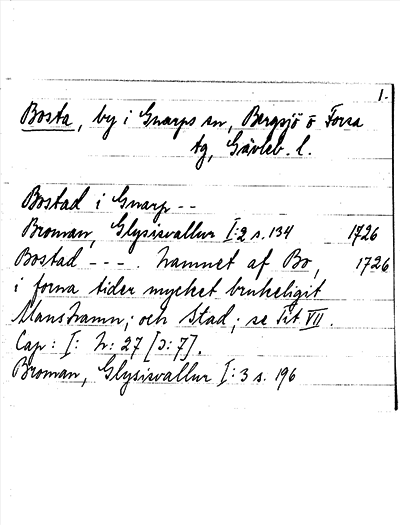 1.
Bosta, by i Gnarps sn, Bergsjö o Forsa
tg, Gävleb. l.
Bostad i Gnarp --
Broman, Glysisvallur I:2 s. 134 1726
Bostad --- . hamnet af Bo, 1726
i forna tider mycket brukeligit
Manshamn; och Stad; se Tit VII.
Cap: I: h: 27 [D:7].
Broman, Glysisvallur I:3 s. 196